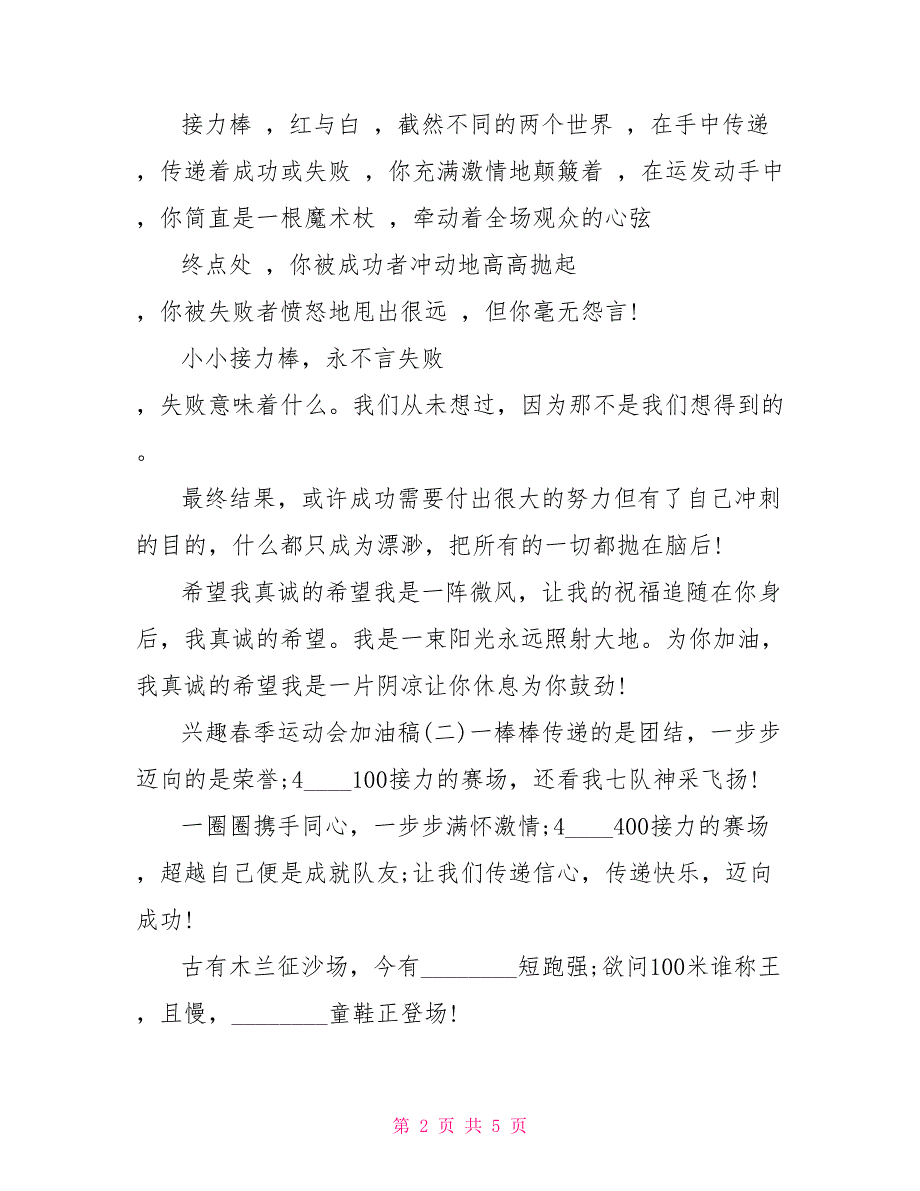 接力棒 ，红与白 ，截然不同的两个世界 ，在手中传递
，传递着成功或失败 ，你充满激情地颠簸着 ，在运发动手中
，你简直是一根魔术杖 ，牵动着全场观众的心弦
终点处 ，你被成功者冲动地高高抛起
，你被失败者愤怒地甩出很远 ，但你毫无怨言!
小小接力棒，永不言失败
，失败意味着什么。我们从未想过，因为那不是我们想得到的
。
最终结果，或许成功需要付出很大的努力但有了自己冲刺
的目的，什么都只成为漂渺，把所有的一切都抛在脑后!
希望我真诚的希望我是一阵微风，让我的祝福追随在你身
后，我真诚的希望。我是一束阳光永远照射大地。为你加油，
我真诚的希望我是一片阴凉让你休息为你鼓劲!
兴趣春季运动会加油稿(二)一棒棒传递的是团结，一步步
迈向的是荣誉;4____100接力的赛场，还看我七队神采飞扬!
一圈圈携手同心，一步步满怀激情;4____400接力的赛场
，超越自己便是成就队友;让我们传递信心，传递快乐，迈向
成功!
古有木兰征沙场，今有________短跑强;欲问100米谁称王
，且慢，________童鞋正登场!
第 2 页 共 5 页